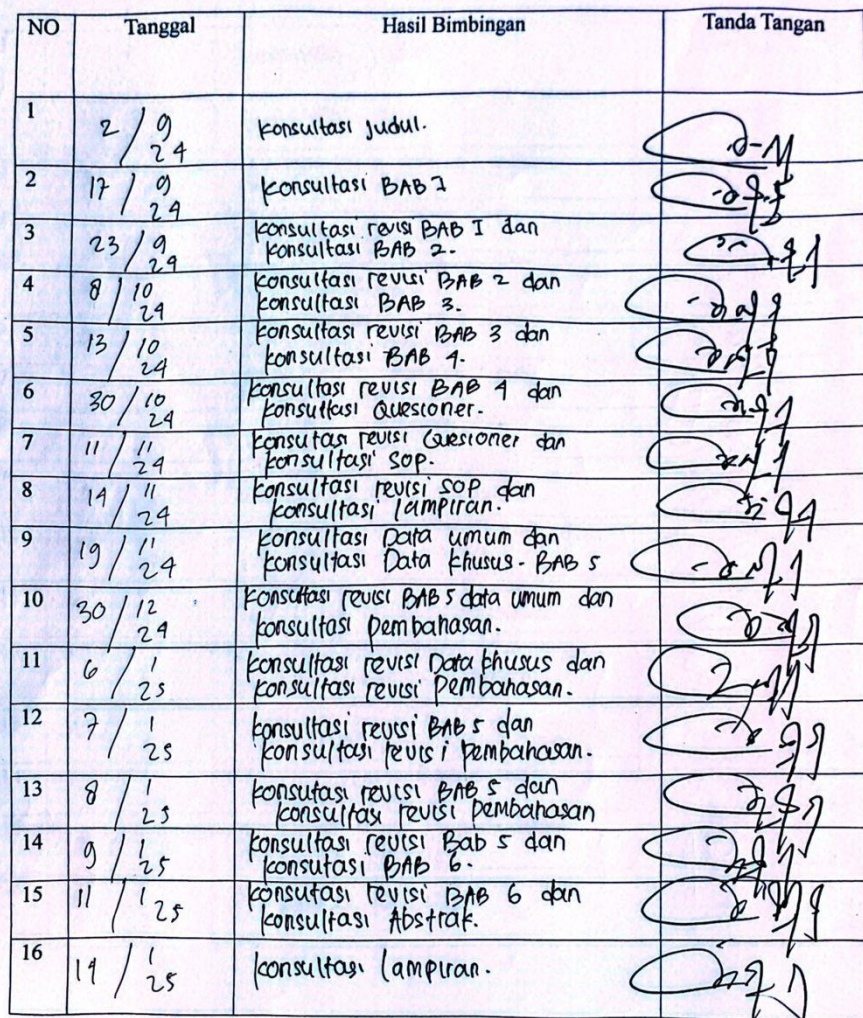 NO Tanggal Hasil Bimbingan Tanda Tangan
1 2/9 24 konsultasi judul.
2 17/9 24 konsultasi BAB 1
3 23/9 24 konsultasi revisi BAB I dan
konsultasi BAB 2.
4 8/10 24 konsultasi revisi BAB 2 dan
konsultasi BAB 3.
5 13/10 24 konsultasi revisi BAB 3 dan
konsultasi BAB 4.
6 30/10 24 konsultasi revisi BAB 4 dan
konsultasi Quesioner.
7 11/11 24 konsutasi revisi Quesioner dan
konsultasi SOP.
8 14/11 24 konsultasi revisi SOP dan
konsultasi lampiran.
9 19/11 24 konsultasi Data umum dan
konsultasi Data khusus. BAB 5
10 30/12 24 konsultasi revisi BAB 5 data umum dan
konsultasi pembahasan.
11 6/1 25 konsultasi revisi Data khusus dan
konsultasi revisi pembahasan.
12 7/1 25 konsultasi revisi BAB 5 dan
konsultasi revisi pembahasan.
13 8/1 25 konsutasi revisi BAB 5 dan
konsultasi revisi pembahasan
14 9/1 25 konsultasi revisi Bab 5 dan
konsutasi BAB 6.
15 11/1 25 konsutasi revisi BAB 6 dan
konsultasi Abstrak.
16 14/1 25 konsultasi lampiran.